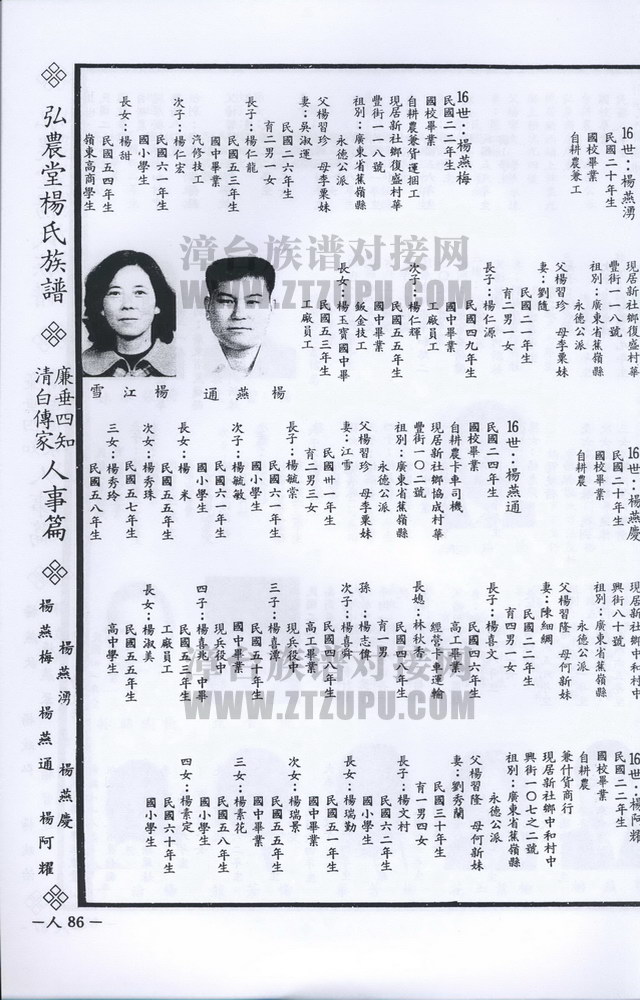 弘農堂楊氏族譜
廉垂四知
清白傳家
人事篇
楊燕湧　楊燕慶
楊燕梅　楊燕通　楊阿耀
16世：楊燕湧
民國二十年生
國校畢業
自耕農兼工
16世：楊燕梅
民國二二年生
國校畢業
自耕農兼貨運捆工
現居新社鄉復盛村華
豐街一一八號
祖別：廣東省蕉嶺縣
永德公派
父楊習珍　母李粟妹
妻：吳淑運
民國二六年生
育二男一女
長子：楊仁龍
民國五三年生
國中畢業
汽修技工
次子：楊仁宏
民國六一年生
國小學生
長女：楊甜
民國五四年生
嶺東高商學生
現居新社鄉復盛村華
豐街一一八號
祖別：廣東省蕉嶺縣
永德公派
父楊習珍　母李粟妹
妻：劉隨
民國二一年生
育二男一女
長子：楊仁源
民國四九年生
國中畢業
工廠員工
次子：楊仁輝
民國五五年生
國中畢業
鈑金技工
長女：楊玉寶國中畢
民國五三年生
工廠員工
楊燕通
楊江雪
16世：楊燕慶
民國二十年生
國校畢業
自耕農
16世：楊燕通
民國二四年生
國校畢業
自耕農卡車司機
現居新社鄉協成村華
豐街一〇二號
祖別：廣東省蕉嶺縣
永德公派
父楊習珍　母李粟妹
妻：江雪
民國卅一年生
育二男三女
長子：楊毓棠
民國六一年生
國小學生
次子：楊毓敏
民國六一年生
國小學生
長女：楊　米
民國五五年生
次女：楊秀珠
民國五七年生
三女：楊秀玲
民國五八年生
現居新社鄉中和村中
興街八十號
祖別：廣東省蕉嶺縣
永德公派
父楊習隆　母何新妹
妻：陳細網
民國二二年生
育四男一女
長子：楊喜文
民國四六年生
高工畢業
經營卡車運輸
長媳：林秋香
民國四八年生
育一男
孫：楊志偉
次子：楊喜舜
民國四八年生
高工畢業
現兵役中
三子：楊喜漳
民國五十年生
國中畢業
現兵役中
四子：楊喜兆國中畢
民國五三年生
工廠員工
長女：楊淑美
民國五五年生
高中學生
16世：楊阿耀
民國二二年生
國校畢業
自耕農
兼什貨商行
現居新社鄉中和村中
興街一〇七之二號
祖別：廣東省蕉嶺縣
永德公派
父楊習隆　母何新妹
妻：劉秀蘭
民國三十年生
育一男四女
長子：楊文村
民國六二年生
國小學生
長女：楊瑞勤
民國五一年生
國中畢業
次女：楊瑞景
民國五五年生
國中畢業
三女：楊素花
民國五八年生
國小學生
四女：楊素定
民國六十年生
國小學生
－人 86－
漳台族谱对接网
WWW.ZTZUPU.COM
漳台族谱对接网
WWW.ZTZUPU.COM